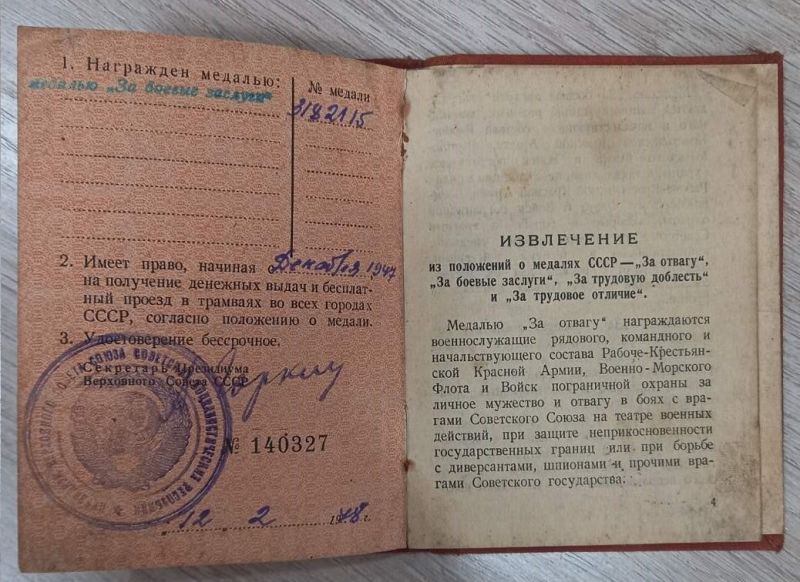 1. Награжден медалью:
№ медали
медалью „За боевые заслуги“
3182115
2. Имеет право, начиная с Декабря 1947
на получение денежных выдач и бесплат-
ный проезд в трамваях во всех городах
СССР, согласно положению о медали.
3. Удостоверение бессрочное.
Секретарь Президиума
Верховного Совета СССР
№ 140327
12 2 1948 г.
ИЗВЛЕЧЕНИЕ
из положений о медалях СССР—„За отвагу“,
„За боевые заслуги“, „За трудовую доблесть“
и „За трудовое отличие“.
Медалью „За отвагу“ награждаются
военнослужащие рядового, командного и
начальствующего состава Рабоче-Крестьян-
ской Красной Армии, Военно-Морского
Флота и Войск пограничной охраны за
личное мужество и отвагу в боях с вра-
гами Советского Союза на театре военных
действий, при защите неприкосновенности
государственных границ или при борьбе
с диверсантами, шпионами и прочими вра-
гами Советского государства.
4